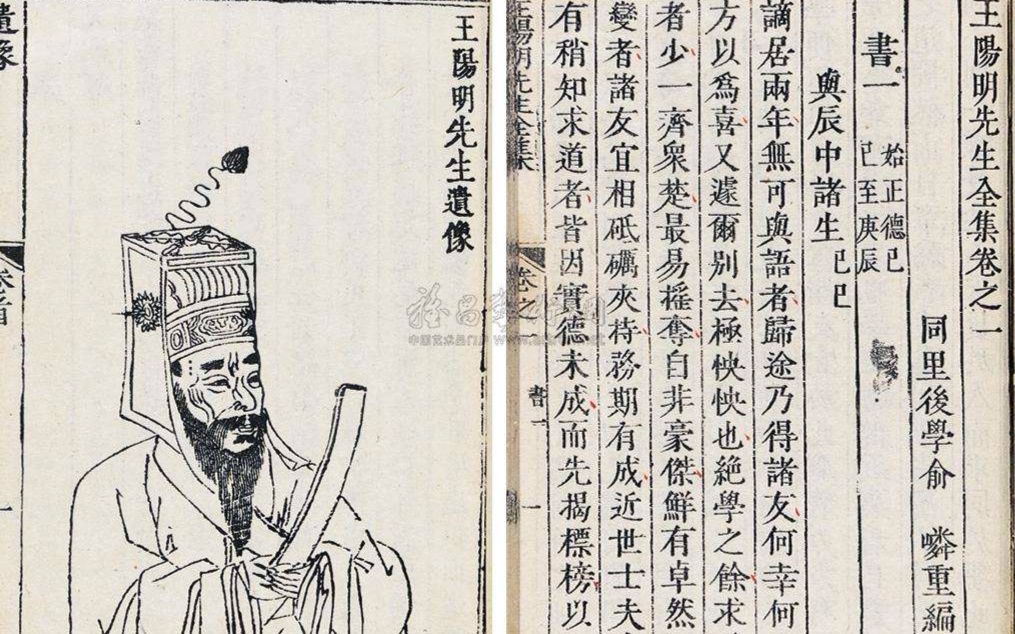 王陽明先生遺像
遺像
卷首
一
王陽明先生全集卷之一
同里後學俞 嶙重編
書一
始正德己
巳至庚辰
與辰中諸生 己巳
謫居兩年無可與語者歸途乃得諸友何幸何
方以爲喜又遽爾別去極怏怏也絕學之餘求
者少一齊衆楚最易搖奪自非豪傑鮮有卓然
變者諸友宜相砥礪夾持務期有成近世士夫
有稍知求道者皆因實德未成而先揭標榜以
王陽明先生全集
卷之一
書一
一
中国艺术品门户